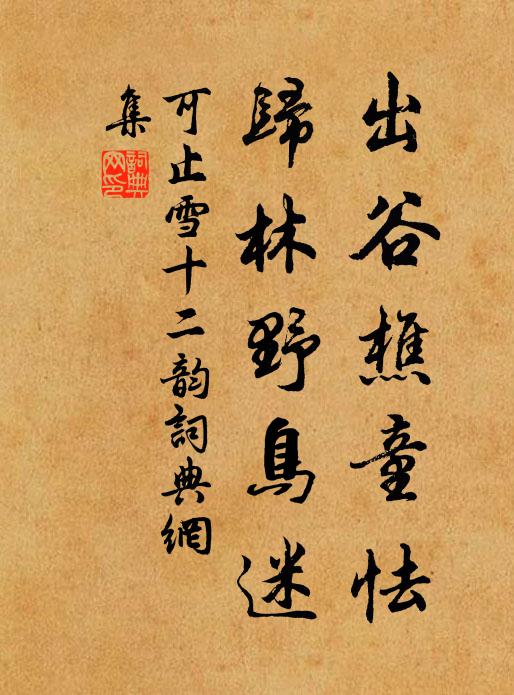 出谷樵童怯
歸林野鳥迷
可止雪十二韵詞典網
集
詞典
网印